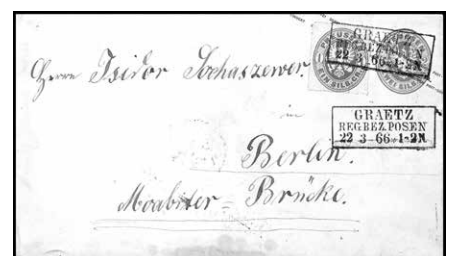 GRAETZ
REG.BEZ.POSEN
22 3 66 1-2N
PREUSS
EIN SILB.GR.
Herrn Isidor Sochaszewer.
in
GRAETZ
REG.BEZ.POSEN
22 3-66 1-2N.
Berlin.
Moabiter-Brücke.